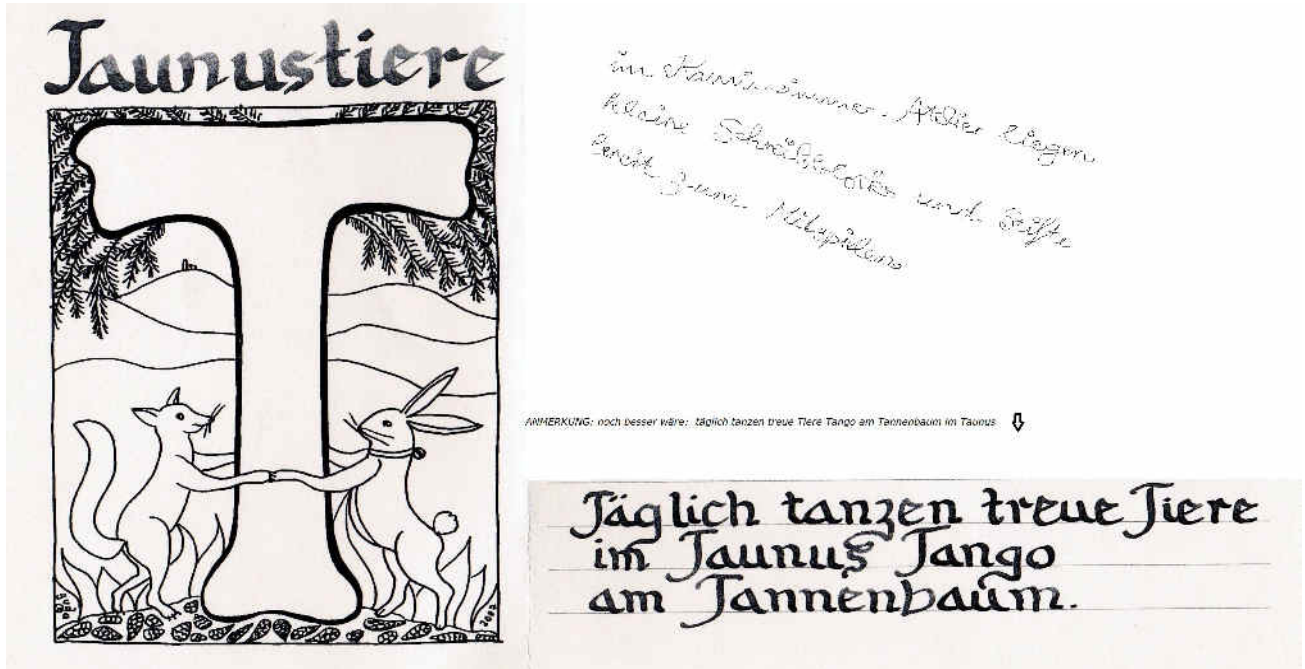 Taunustiere
im Kaminzimmer-Atelier liegen
kleine und Stifte
bereit zum Mitspielen
ANMERKUNG: noch besser wäre: täglich tanzen treue Tiere Tango am Tannenbaum im Taunus
Täglich tanzen treue Tiere
im Taunus Tango
am Tannenbaum.
2002